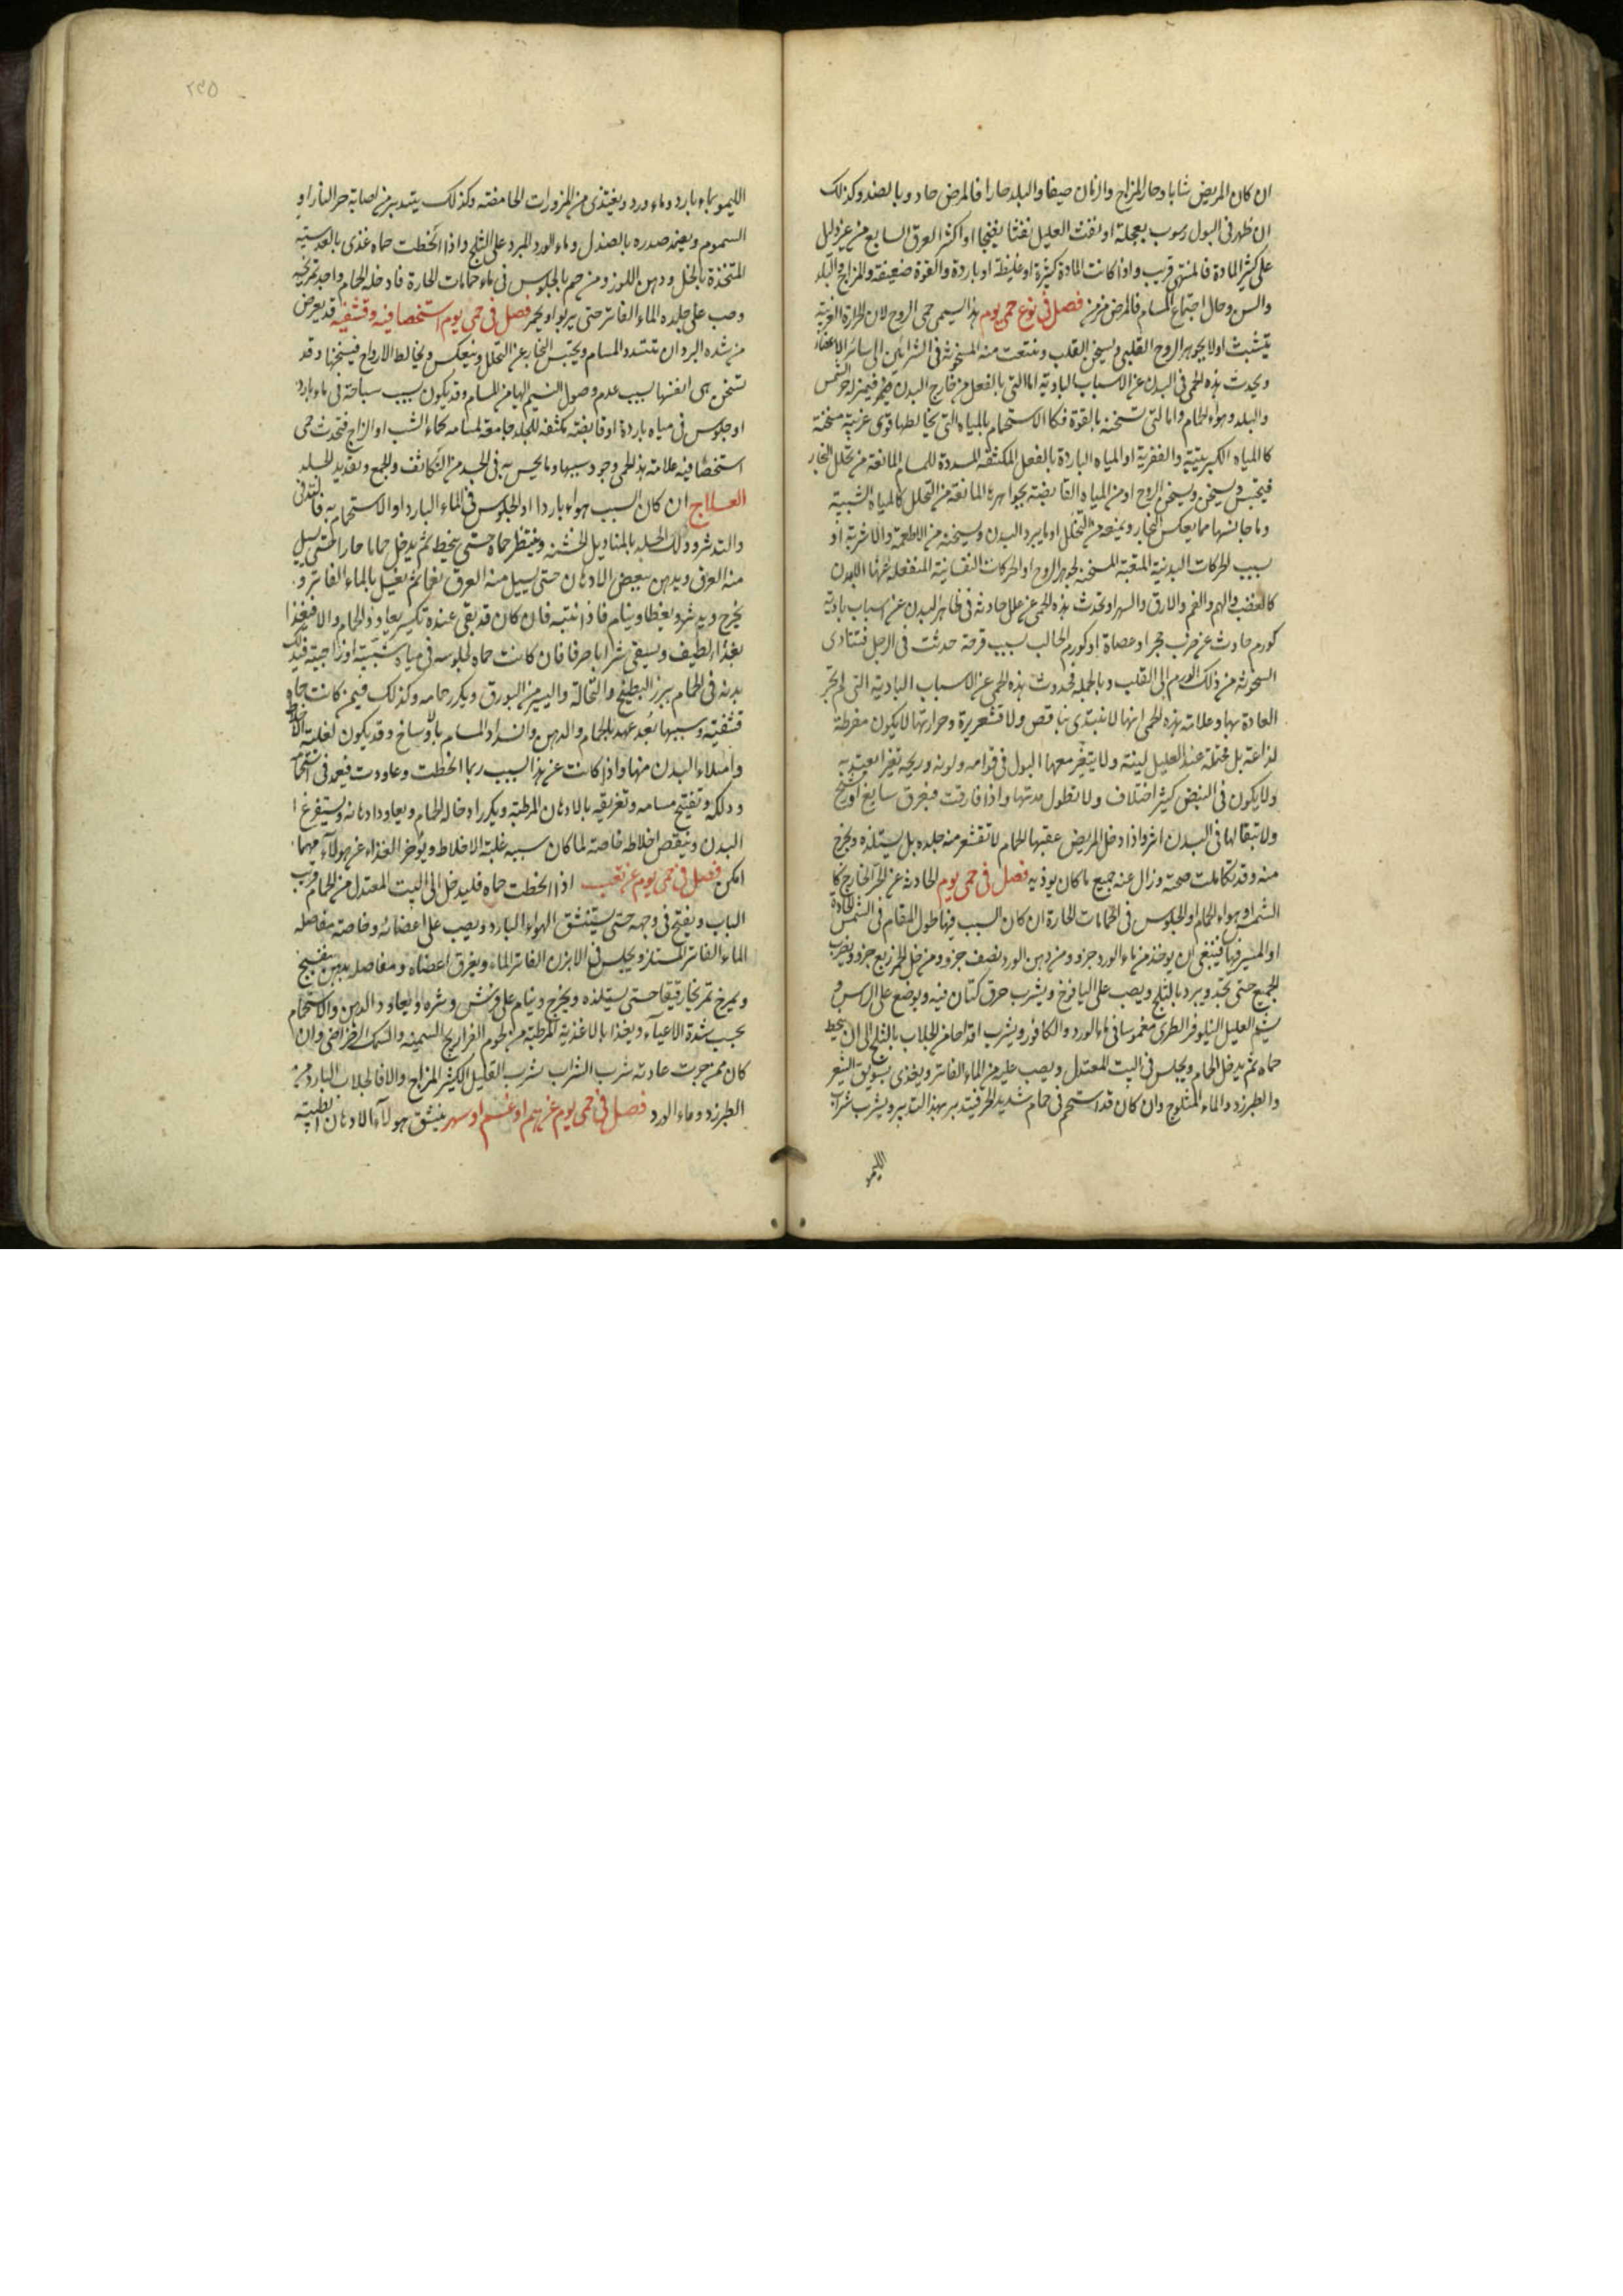 ان كان المريض شابا وحار المزاج والزمان صيفا والبلد حارا فالمرض حاد وبالضد وكذلك
ان ظهر في البول رسوب بعجلة او نفث العليل نفثا نضيجا او اكثر العرق السابع من غير دليل
على كثر المادة فالمنتهى قريب واذا كانت المادة كثيرة او غليظة او باردة والقوة ضعيفة والمزاج والبلد
والسن وحال اجتماع المسام فالمرض مزمن فصل في نوع حمى يوم هذا ليسمى حمى الروح لان الحرارة الغريبة
تتشبث اولا بجوهر الروح القلبي ويسخن القلب وينبعث منه السخونة في الشرايين الى سائر الاعضاء
ويحدث هذه الحمى في البدن عن الاسباب البادية اما التي بالفعل من خارج البدن فيمر له حر الشمس
والبلد وهواء الحمام واما التي تسخنه بالقوة فكالاستحمام بالمياه التي يخالطها قوى غريبة مسخنة
كالمياه الكبريتية والقفرية او المياه الباردة بالفعل المكثفة المسددة للمسام المانعة من تحلل البخار
فيحتبس ويسخن ويسخن الروح او من المياه القابضة بجواهرها المانعة من التحلل كالمياه الشبية
وما جانسها مما يعكس البخار ويمنعه من التحلل او ما يبرد البدن ويسخنه من الاطعمة والاشربة او
بسبب الحركات البدنية المتعبة المسخنة لجوهر الروح او الحركات النفسانية المنفعلة عنها البدن
كالغضب والهم والغم والارق والسهر او تحدث هذه الحمى عن علل حادثة في ظاهر البدن عن اسباب بادية
كورم حادث عن ضرب حجر او عصاة او كورم الحالب بسبب قرحة حدثت في الرجل فتتادى
السخونة من ذلك الورم الى القلب وبالجملة فحدوث هذه الحمى عن الاسباب البادية التي لم تجر
العادة بها وعلامة هذه الحمى انها لا تبتدي بنافض ولا قشعريرة وحرارتها لا يكون مفرطة
لذاعة بل محتملة عند العليل لينة ولا يتغير معها البول في قوامه ولونه وريحه تغيرا يعتد به
ولا يكون في النبض كثير اختلاف ولا تطول مدتها واذا فارقت فبعرق سابغ او رشح
ولا تبقا لها في البدن اثر واذا دخل المريض عقبها الحمام لا تقشعر منه جلده بل يستلذه ويخرج
منه وقد تكاملت صحته وزال عنه جميع ما كان يوذيه فصل في حمى يوم الحادثة عن الحر الخارج كا
الشمس او هواء الحمام او الجلوس في الحمامات الحارة ان كان السبب فيها طول المقام في الشمس الحادة
او المسير فيها فينبغي ان يوخذ من ماء الورد جزو ومن دهن الورد نصف جزو ومن خل الخمر ربع جزو ويضرب
الجميع حتى يتحد ويبرد بالثلج ويصب على اليافوخ ويشرب خرق كتان فيه ويوضع على الراس و
يشم العليل النيلوفر الطري مغموسا في ماء الورد والكافور ويشرب اقداحا من الجلاب بالثلج الى ان ينحط
حماه ثم يدخل الحمام ويجلس في البيت المعتدل ويصب عليه من الماء الفاتر ويغذى بسويق الشعير
والطبرزد والماء المثلوج وان كان قد استحم في حمام شديد الحر فيتدبر بهذا التدبير ويشرب شراب
الليمو
٢٤٥
الليمو بماء بارد وماء ورد ويغتذي من المزورات الحامضة وكذلك يتدبر من اصابه حر النار او
السموم ويضمد صدره بالصندل وماء الورد المبرد على الثلج واذا انحطت حماه غذى بالعدسية
المتخذة بالخل ودهن اللوز ومن حم بالجلوس في ماء حمامات الحارة فادخله الحمام واجد تمريخه
وصب على جلده الماء الفاتر حتى يربو او يحمر فصل في حمى يوم استحصافية وقشفية قد يعرض
من شدة البرد ان تتسدد المسام ويحتبس البخار عن التحلل وينعكس ويخالط الارواح فيسخنها وقد
تسخن هي انفسها بسبب عدم وصول النسيم اليها من المسام وقد يكون بسبب سباحة في ماء بارد
او جلوس في مياه باردة او قابضة مكثفة للجلد جامعة لمسامه كماء الشب او الزاج فتحدث حمى
استحصافية علامة هذه الحمى وجود سببها وما يحس به في الجلد من التكاثف والجمع وتمديد الجلد
العلاج ان كان السبب هواء باردا او الجلوس في الماء البارد او الاستحمام به فالتدفي
والتدثر ودلك الجلد بالمناديل الخشنة وينتظر حماه حتى ينحط ثم يدخل حماما حارا حتى يسيل
منه العرق ويدهن ببعض الادهان حتى يسيل منه العرق نعما ثم يغسل بالماء الفاتر و
يخرج ويدثر ويغطا وينام فاذا انتبه فان كان قد بقى عنده تكسير يعاود الحمام والا فيغذا
بغذاء لطيف ويسقى شرابا صرفا فان كانت حماه لجلوسه في مياه شبية او زاجية فيدلك
بدنه في الحمام ببزر البطيخ والنخالة واليسير من البورق ويكرر حمامه وكذلك فيمن كانت حماه
قشفية وسببها بعد عهد بالحمام والدهن وانسداد المسام بالاوساخ وقد يكون لغلبة الاخلاط
وامتلاء البدن منها واذا كانت عن هذا السبب ربما انحطت وعاودت فيعمد في استحمامه
ودلكه وتفتيح مسامه وتعريقه بالادهان المرطبة ويكرر ادخاله الحمام ويعاود ادهانه ويستفرغ
البدن وينقص اخلاطه خاصة لما كان سببه غلبة الاخلاط ويوخر الغذاء عن هولاء مهما
امكن فصل في حمى يوم عن تعب اذا انحطت حماه فليدخل الى البيت المعتدل من الحمام قرب
الباب ويفتح في وجهه حتى يستنشق الهواء البارد ويصب على اعضائه وخاصة مفاصله
الماء الفاتر المستلذ ويجلس في الابزن الفاتر الماء ويغرق اعضاه ومفاصله بدهن بنفسج
ويمرخ تمريخا رقيقا حتى يستلذه ويخرج وينام على فرش وثيرة ويعاود الدهن والاستحمام
بحسب شدة الاعياء ويغذا بالاغذية المرطبة من لحوم الفراريج السمينة والسمك الرضراضي وان
كان ممن جرت عادته شرب الشراب شرب القليل الكثير المزاج والا فالجلاب البارد من
الطبرزد وماء الورد فصل في حمى يوم عن هم او غم او سهر ينشق هولاء الادهان الطيبة